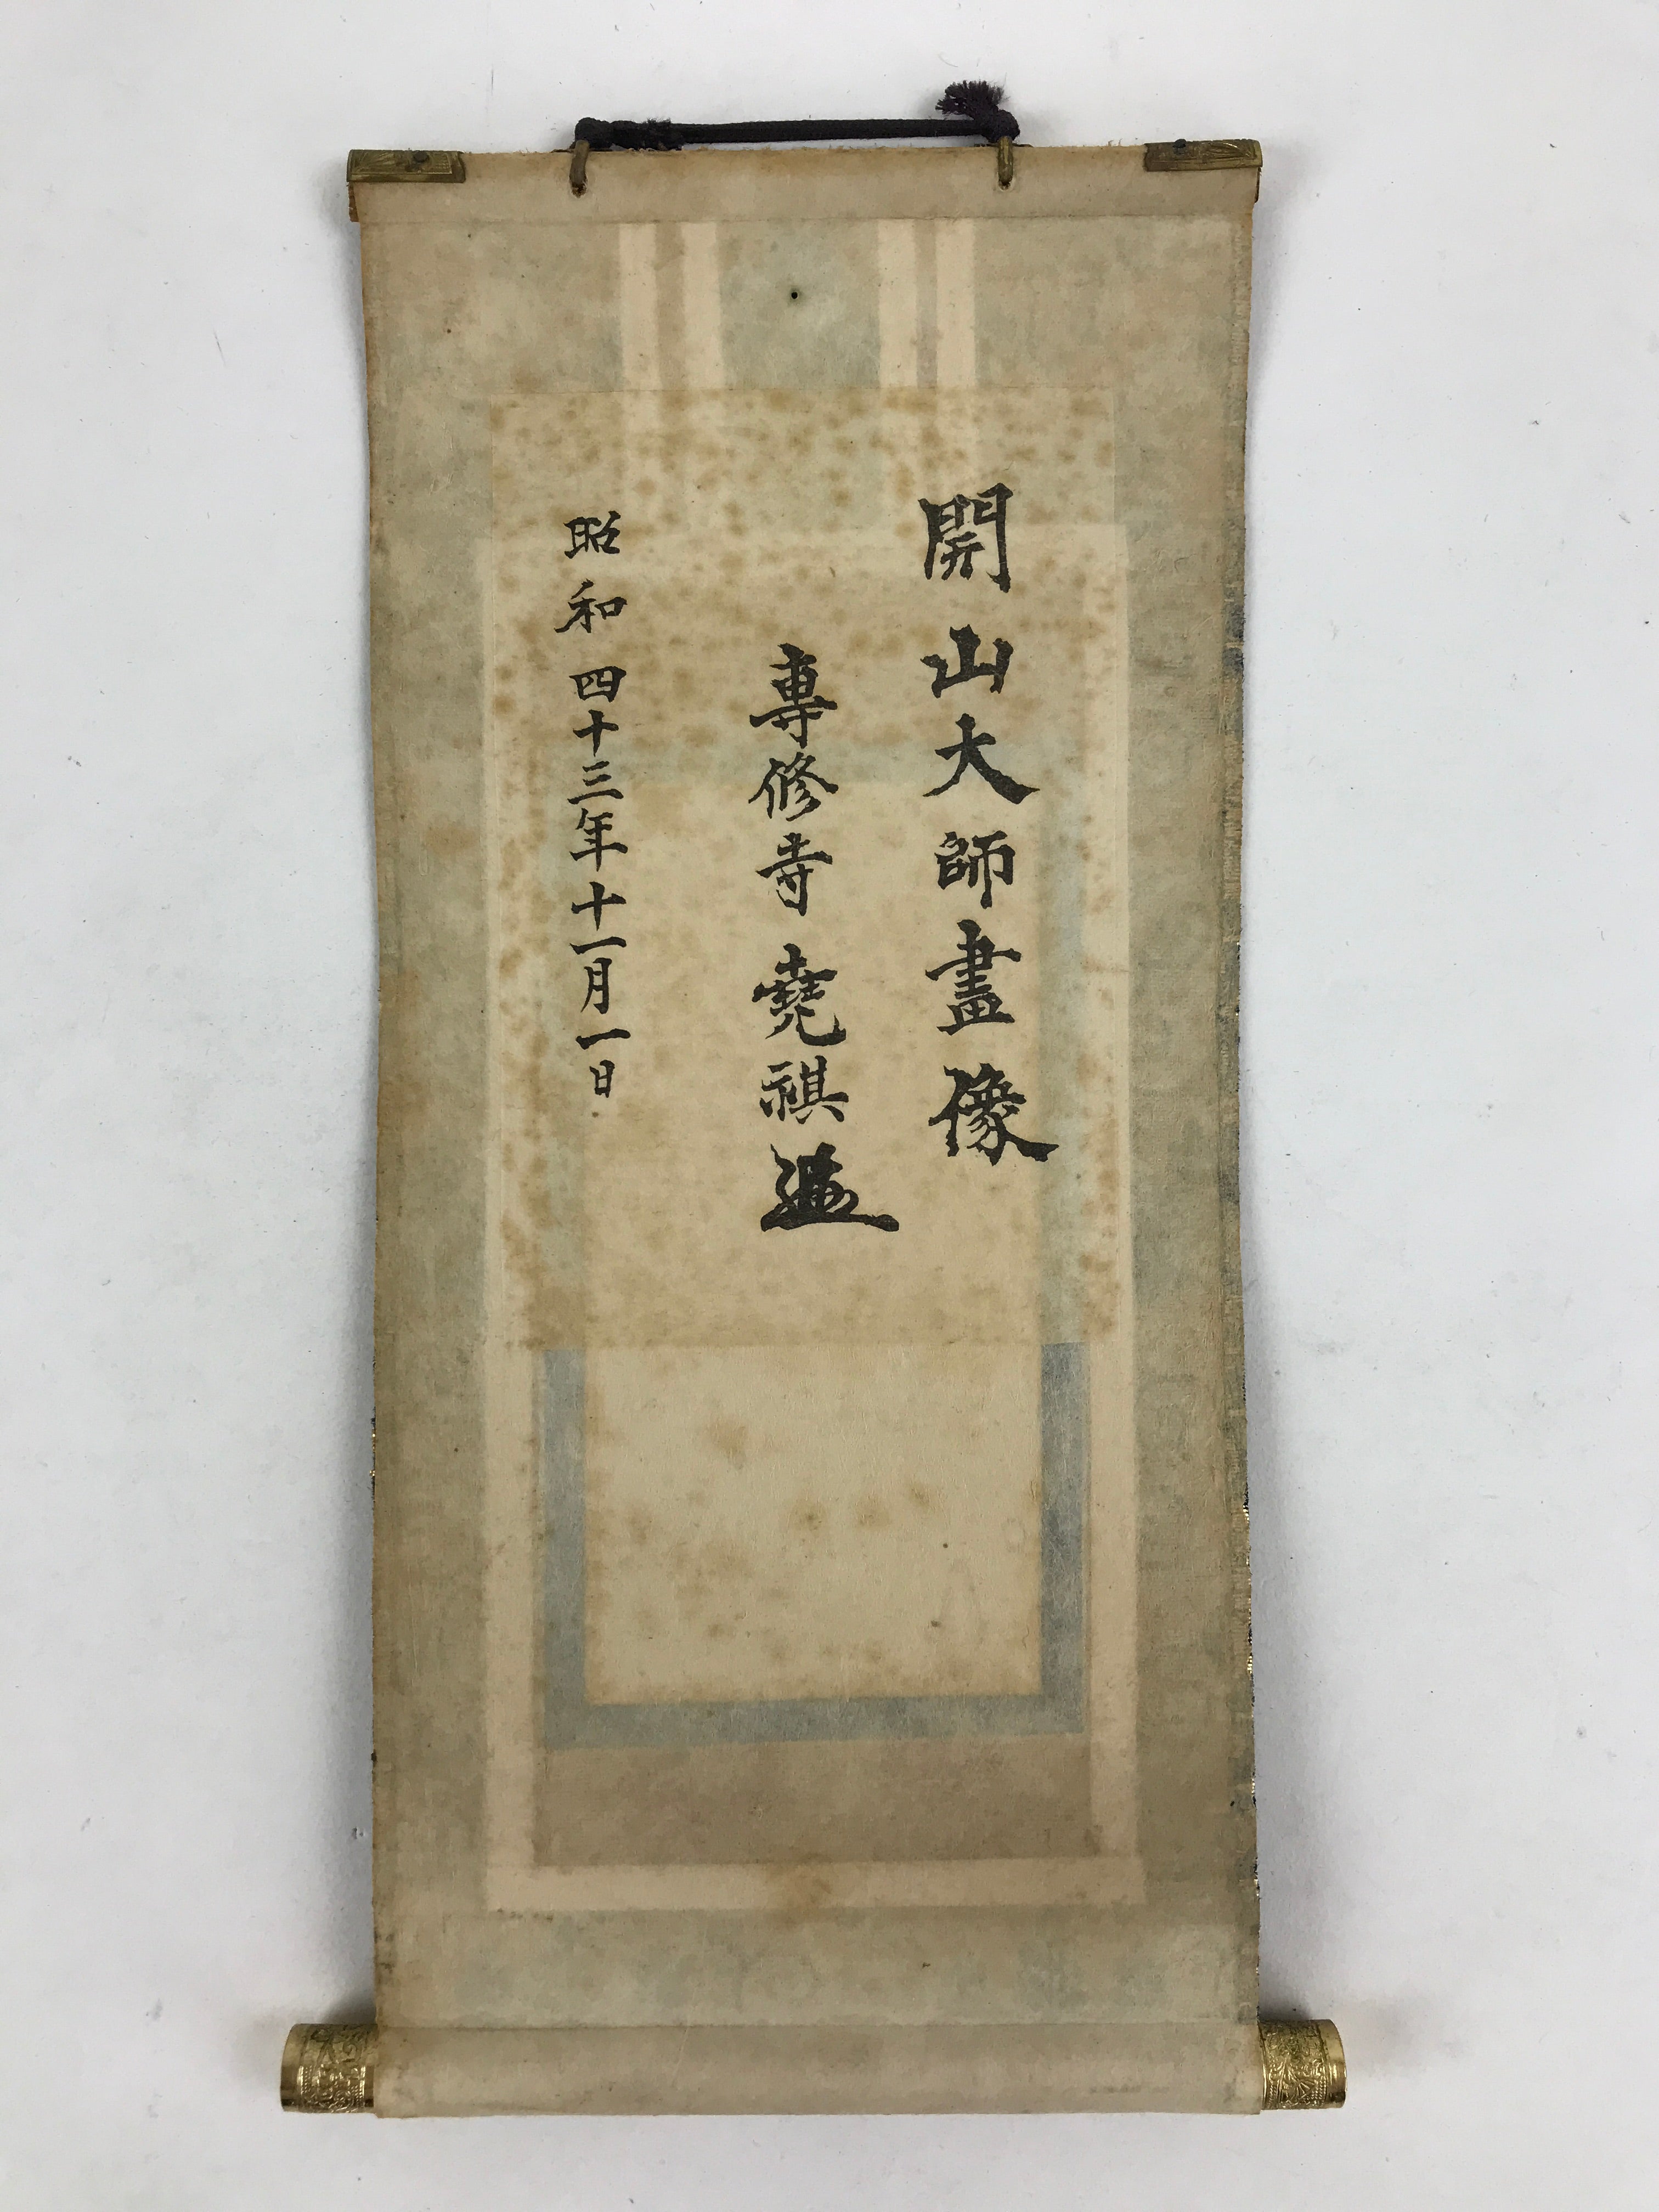 開山大師畫像
專修寺 堯祺
昭和四十三年十一月一日